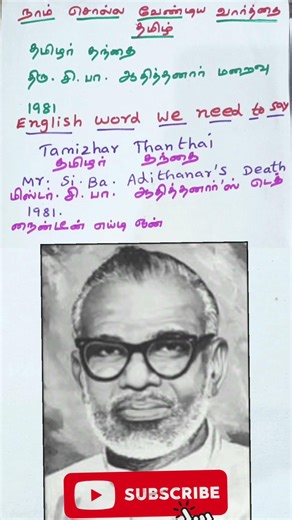 நாம் சொல்ல வேண்டிய வார்த்தை
தமிழ்
தமிழர் தந்தை
திரு. சி. பா. ஆதித்தனார் மறைவு
1981
English word we need to say
Tamizhar Thanthai
தமிழர் தந்தை
Mr. Si. Ba. Adithanar's Death
மிஸ்டர். சி. பா. ஆதித்தனார்'ஸ் டெத்
1981.
நைன்டீன் எய்டி ஒன்
SUBSCRIBE